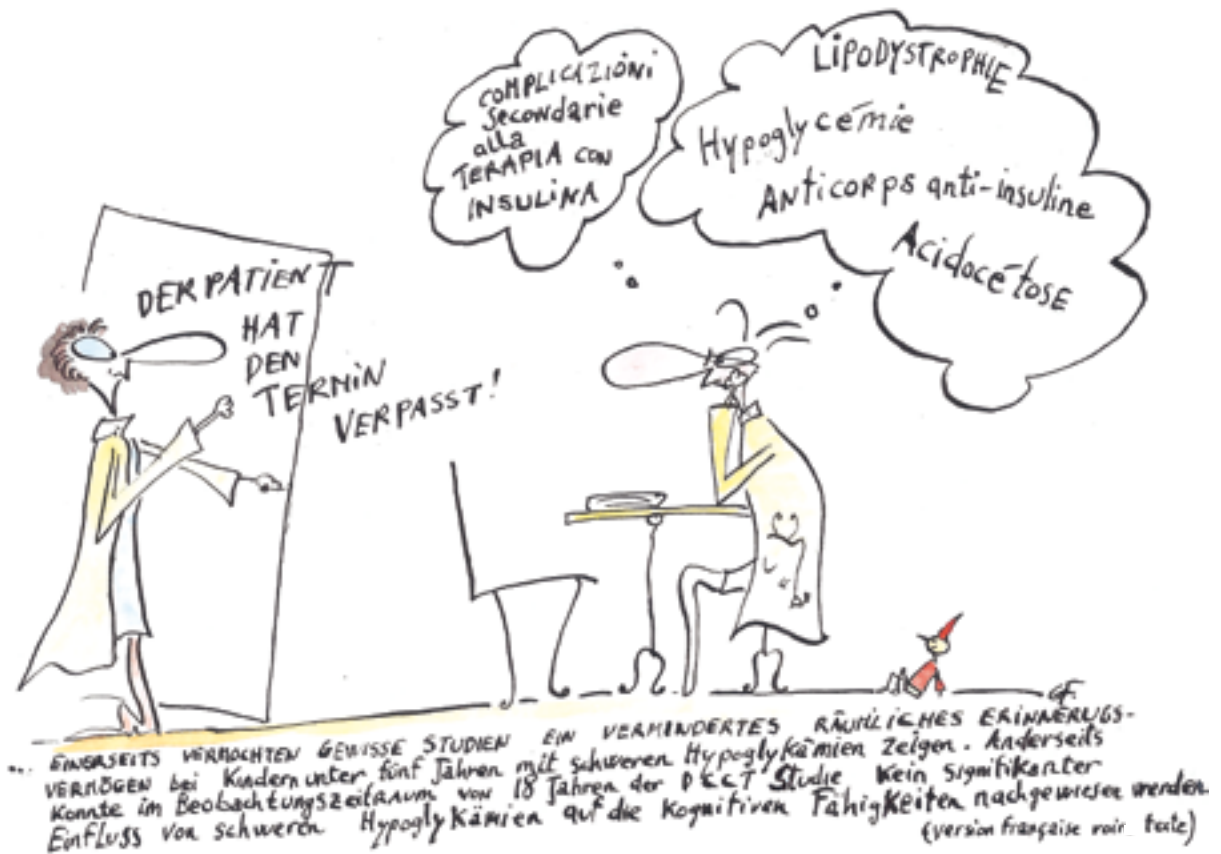 COMPLICAZIONI
secondarie
alla
TERAPIA CON
INSULINA
LIPODYSTROPHIE
Hypoglycémie
ANTICORPS anti-insuline
Acidocétose
DER PATIENT
HAT
DEN
TERMIN
VERPASST!
GF.
... EINERSEITS VERMOCHTEN GEWISSE STUDIEN EIN VERMINDERTES RÄUMLICHES ERINNERUNGS-
VERMÖGEN bei Kindern unter fünf Jahren mit schweren Hypoglykämien zeigen. Anderseits
konnte im Beobachtungszeitraum von 18 Jahren der DCCT Studie kein signifikanter
Einfluss von schweren Hypoglykämien auf die kognitiven Fähigkeiten nachgewiesen werden
(version française voir texte)